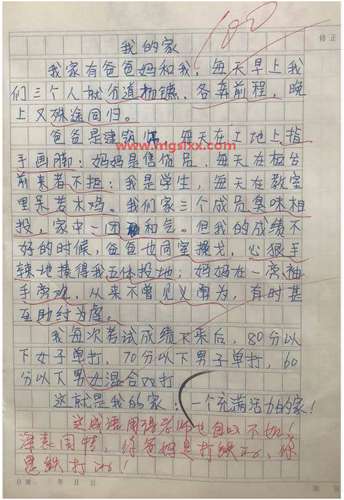 100
修正
我的家
我家有爸爸妈和我，每天早上我
们三个人就分道扬镳，各奔前程，晚
上又殊途同归。
爸爸是建筑师，每天在工地上指
www.mgslxx.com
手画脚；妈妈是售货员，每天在柜台
前来者不拒；我是学生，每天在教室
里呆若木鸡。我们家三个成员臭味相
投，家中一团和气。但我的成绩不
好的时候，爸爸也同室操戈，心狠手
辣地揍得我五体投地；妈妈在一旁袖
手旁观，从来不曾见义勇为，有时甚
至助纣为虐。
我每次考试成绩下来后，80分以
下女子单打，70分以下男子单打，60
分以下男女混合双打
这就是我的家，一个充满活力的家！
这成语用得老师也自叹不如！
深表同情，你爸妈是打铁的，你
是铁打的！
日期： 年 月 日